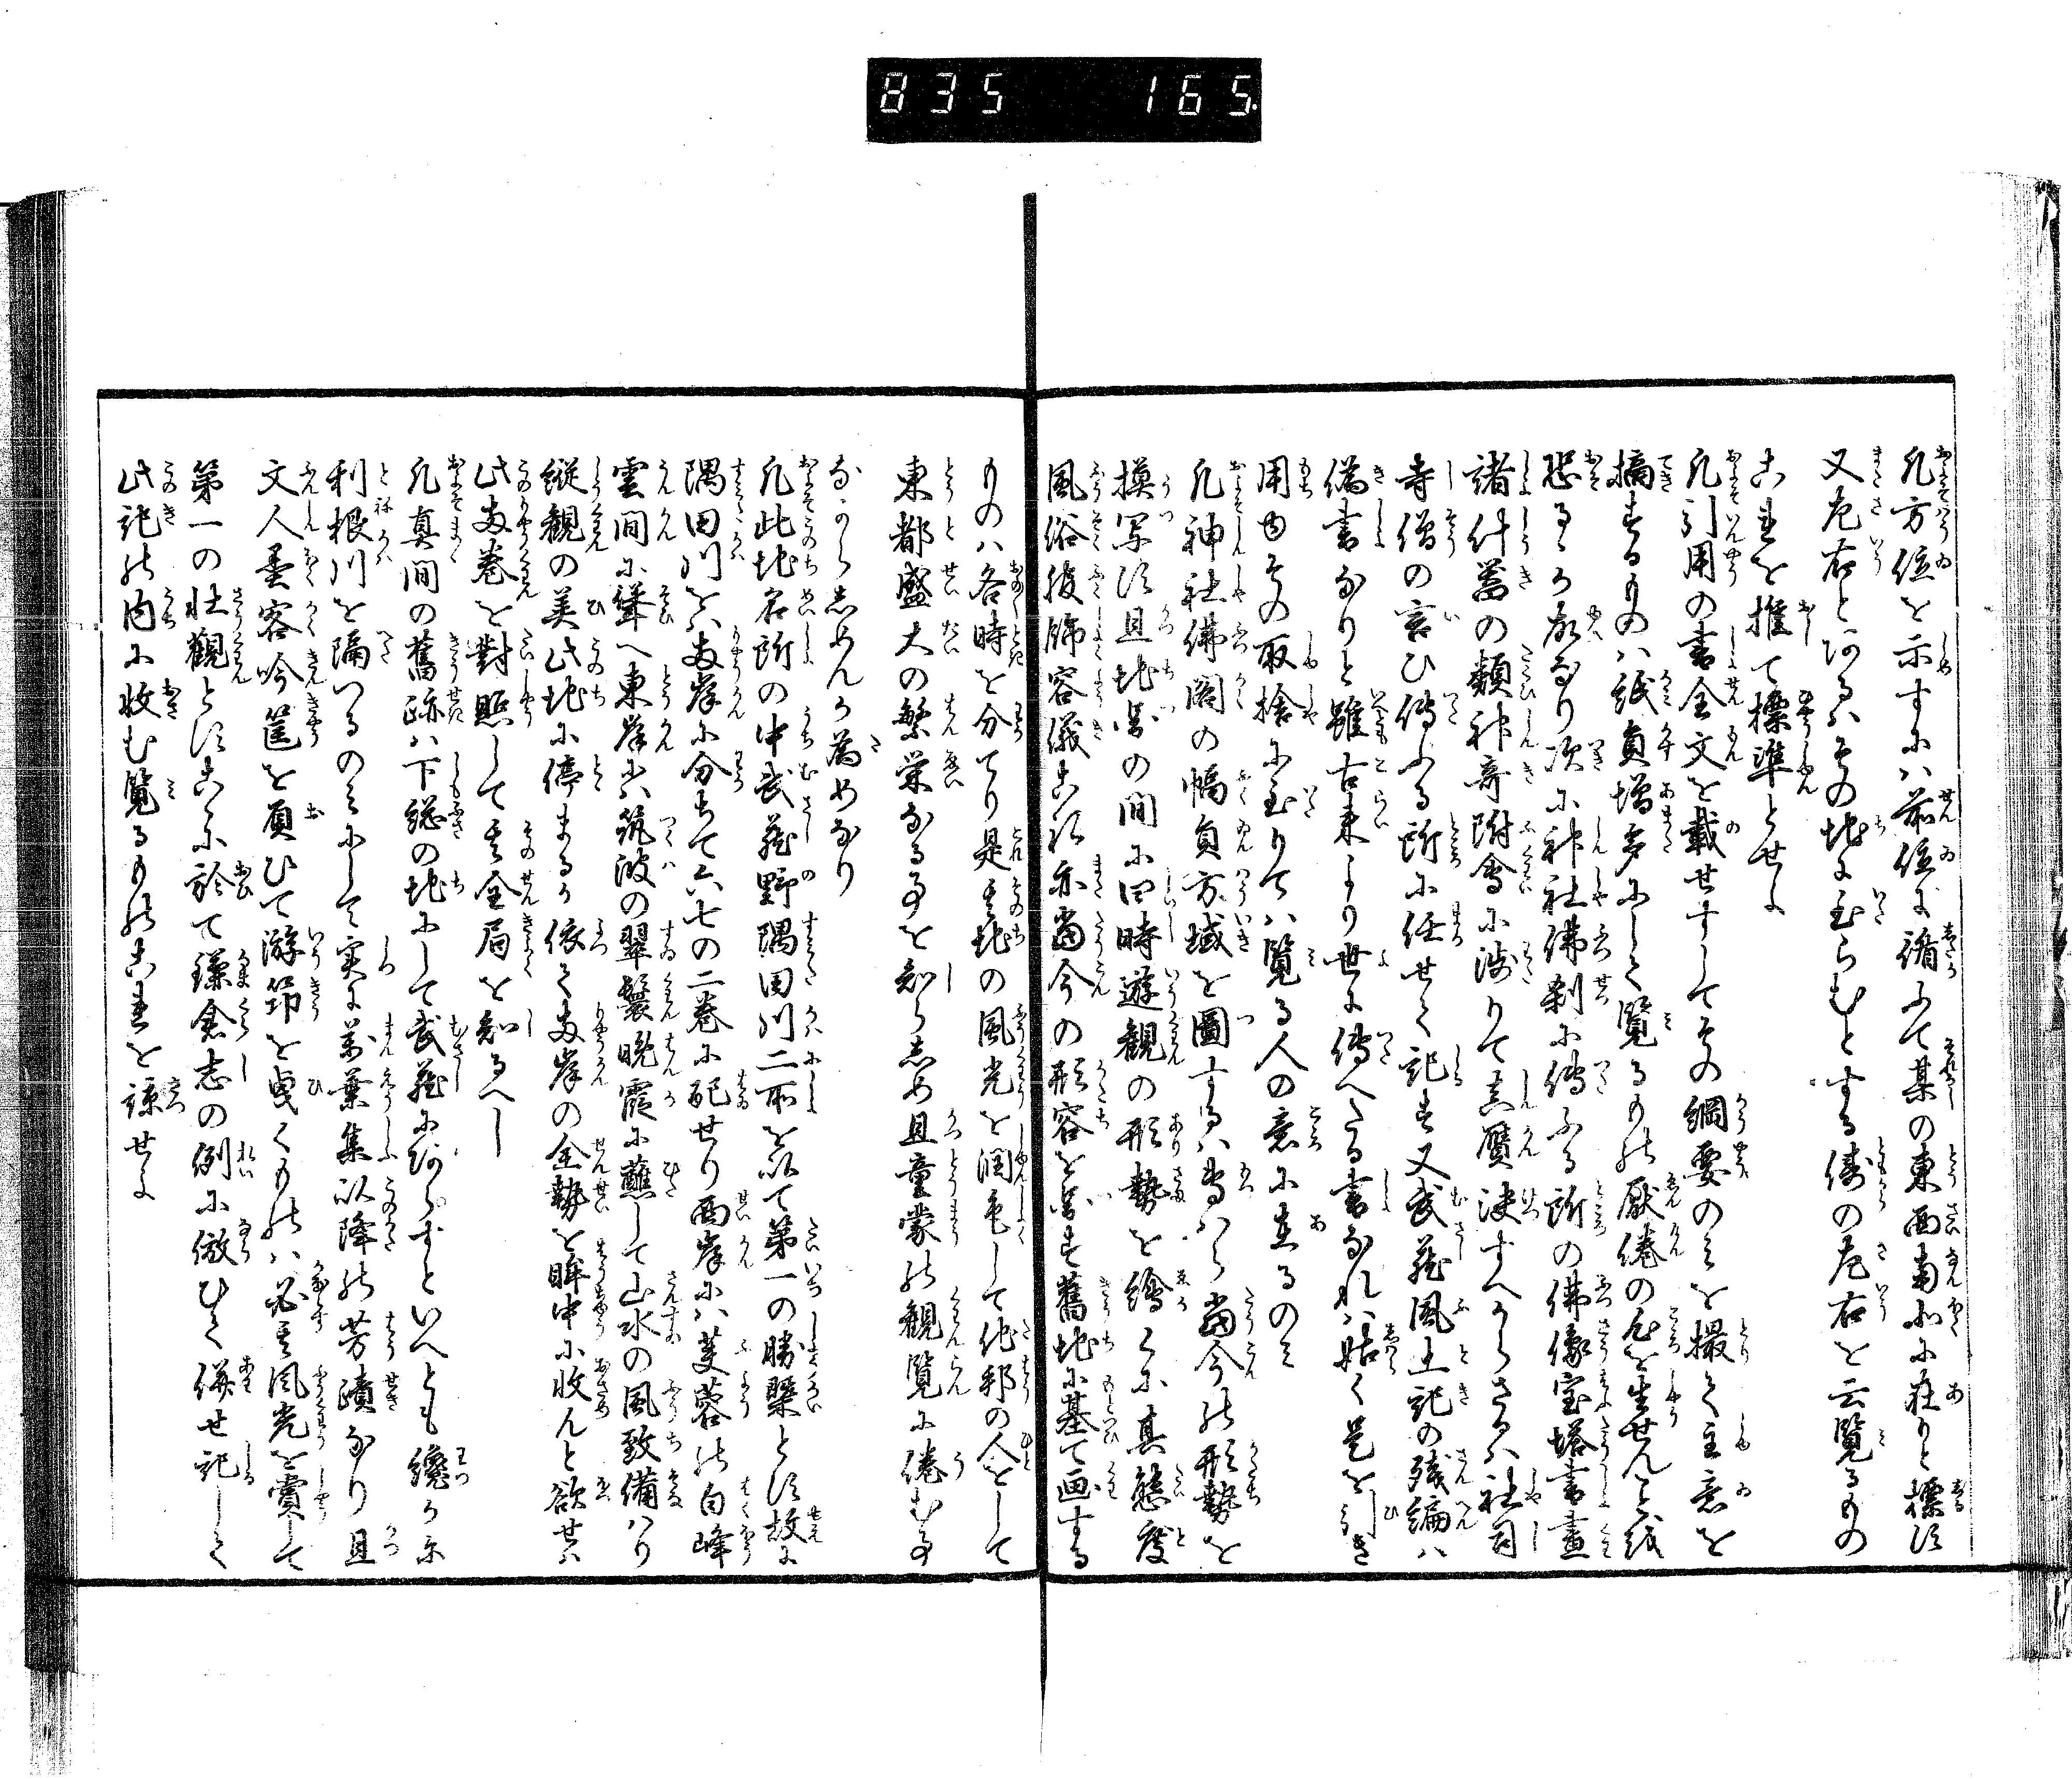 835 165.
凡方位を示すには前位に循ふて某の東西南北に在りと標す
又左右とあるはその地にいたらむとする街の左右を云覧るもの
これを推て標準とせよ
凡引用の書全文を載せすしてその綱要のみを撮て主意を
摘するものは紙員増多にして覧るもの厭倦の心を生せんことを
恐るゝか故なり次に神社佛刹に傳ふる所の佛像宝塔書畫
諸什器の類神奇附會に渉りて真贋決すへからさるは社司
寺僧の言ひ傳ふる所に任せて記す又武蔵風土記の残編は
偽書なりと雖古来より世に傳へたる書なれは姑く是を引き
用ゆその取捨に至りては覧る人の意に在るのみ
凡神社佛閣の幅員方域を圖するは専ら當今の形勢を
摸写す且地図の間に四時遊観の形勢を繪くに其態度
風俗服飾容儀これ亦當今の形容を図す舊地に基て画する
ものは各時を分てり是其地の風光を潤色して他邦の人をして
東都盛大の繁栄なる事を知らしめ且童蒙の観覧に倦む事
なからしめんか為めなり
凡此地名所の中武蔵野隅田川二所を以て第一の勝槩とす故に
隅田川をは両岸に分ちて六七の二巻に配せり西岸には芙蓉の白峰
雲間に聳へ東岸は筑波の翠鬟晩霞に蘸して山水の風致備はり
縦観の美此地に停まるか依て両岸の全勢を眸中に收んと欲せは
此両巻を對照して其全局を知るへし
凡真間の舊跡は下総の地にして武蔵にあらすといへとも纔かに
利根川を隔つるのみにして実に萬葉集以降の芳蹟なり且
文人墨客吟筐を負ひて游笻を曳くものは必其風光を賞して
第一の壮觀とすこゝに於て鎌倉志の例に倣ひて併せ記して
此記の内に收む覧るものこれを諒せよ